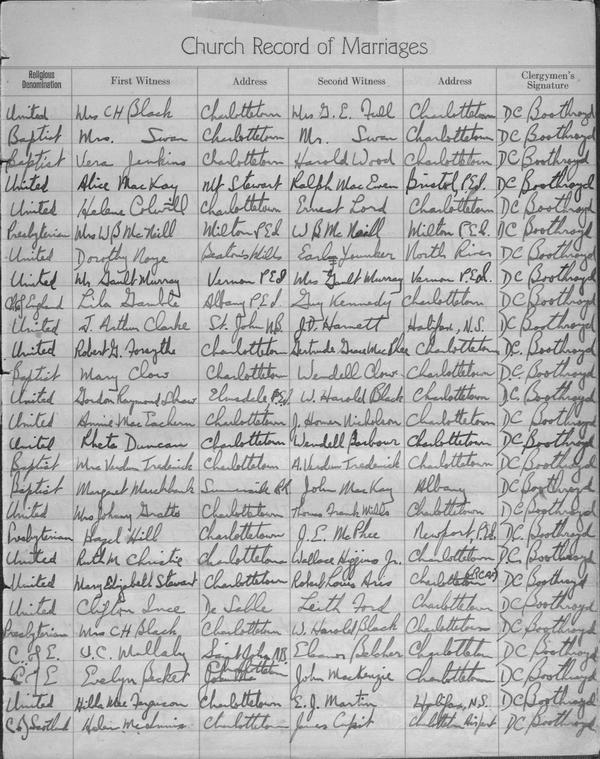 Church Record of Marriages
Religious Denomination First Witness Address Second Witness Address Clergymen's Signature
United Mrs CH Black Charlottetown Mrs G. E. Full Charlottetown DC Boothroyd
Baptist Mrs. Swan Charlottetown Mr. Swan Charlottetown DC Boothroyd
Baptist Vera Jenkins Charlottetown Harold Wood Charlottetown DC Boothroyd
United Alice MacKay Mt Stewart Ralph MacEwen Bristol, P.E.I. DC Boothroyd
United Helene Colwill Charlottetown Ernest Lord Charlottetown DC Boothroyd
Presbyterian Mrs W B McNeill Milton P.E.I W B McNeill Milton P.E.I. DC Boothroyd
United Dorothy Noye Earle Younker North River DC Boothroyd
United Mr Gault Murray Vernon P.E.I Mrs Gault Murray Vernon P.E.I. DC Boothroyd
C of England Lila Gamble Albany P.E.I. Guy Kennedy Charlottetown DC Boothroyd
United J. Arthur Clarke St. John N.B. J.D. Harnett Halifax, N.S. DC Boothroyd
United Robert G. Forsythe Charlottetown Gertrude Grace MacPhee Charlottetown DC Boothroyd
Baptist Mary Clow Charlottetown Wendell Clow Charlottetown DC Boothroyd
United Gordon Raymond Shaw Elmsdale P.E.I W. Harold Black Charlottetown DC Boothroyd
United Annie MacEachern Charlottetown J. Homer Nicholson Charlottetown DC Boothroyd
United Rheta Duncan Charlottetown Wendell Barbour Charlottetown DC Boothroyd
Baptist Mrs Verdun Frederick Charlottetown A. Verdun Frederick Charlottetown DC Boothroyd
Baptist Margaret Marchbank Summerside John MacKay Albany DC Boothroyd
United Mrs Johnny Charlottetown Thomas Frank Wills Charlottetown DC Boothroyd
Presbyterian Hazel Hill Charlottetown J. E. McPhee Newport, P.E.I. DC Boothroyd
United Ruth M Christie Charlottetown Wallace Higgins Jr. Charlottetown DC Boothroyd
United Mary Elizabeth Stewart Charlottetown Robert Louis Charlottetown (RCAF) DC Boothroyd
United Clifton Ince De Sable Leith Ford Charlottetown DC Boothroyd
Presbyterian Mrs CH Black Charlottetown W. Harold Black Charlottetown DC Boothroyd
C. of E. Saint John NB Eleanor Belcher Charlottetown DC Boothroyd
C of E Evelyn Becket Charlottetown John MacKenzie Charlottetown DC Boothroyd
United Hilda Mae Ferguson Charlottetown E. J. Martin Halifax, N.S. DC Boothroyd
C of Scotland Helen McInnis Charlottetown James Charlottetown Airport DC Boothroyd